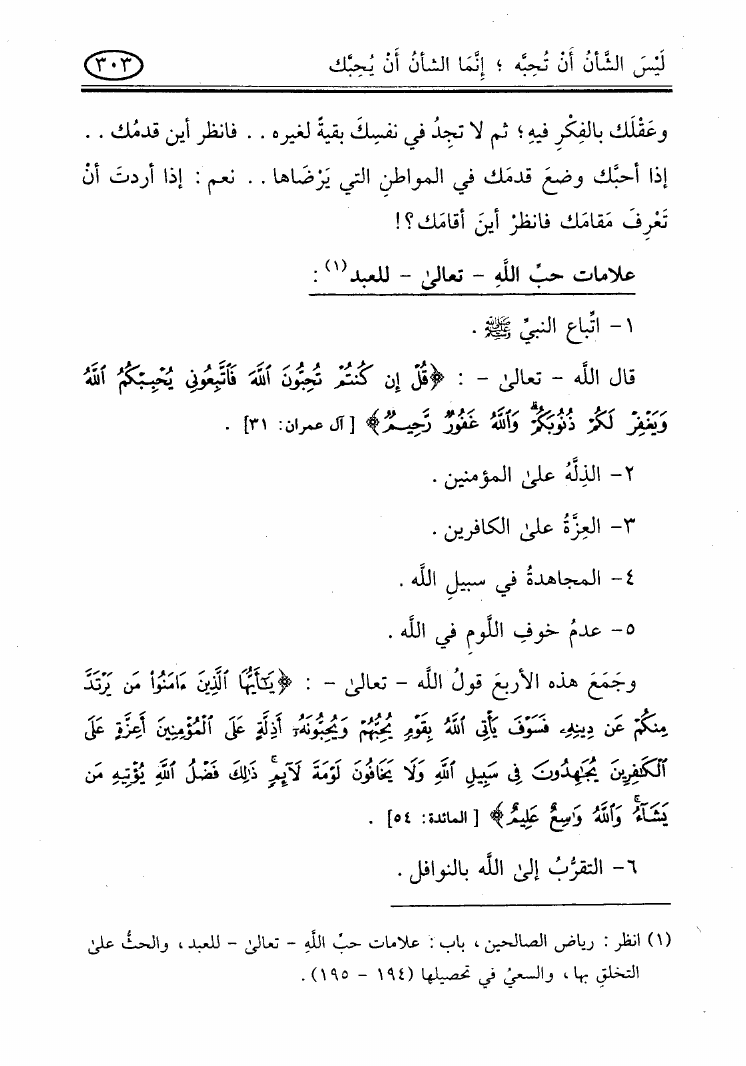 لَيْسَ الشَّأنُ أَنْ تُحِبَّه ؛ إِنَّمَا الشأنُ أَنْ يُحِبَّك ٣٠٣
وعَقْلَك بالفِكْرِ فيهِ؛ ثم لا تجدُ في نفسِكَ بقيةً لغيره . . فانظر أين قدمُك . .
إذا أحبَّك وضعَ قدمَك في المواطنِ التي يَرْضَاها . . نعم : إذا أردتَ أنْ
تَعْرِفَ مَقامَك فانظرْ أينَ أقامَك؟!
علامات حبِّ اللَّهِ – تعالىٰ – للعبد(١) :
١- اتِّباع النبيِّ ﷺ .
قال اللَّه – تعالىٰ – : ﴿قُلْ إِن كُنتُمْ تُحِبُّونَ ٱللَّهَ فَٱتَّبِعُونِى يُحْبِبْكُمُ ٱللَّهُ
وَيَغْفِرْ لَكُمْ ذُنُوبَكُمْۗ وَٱللَّهُ غَفُورٌ رَّحِيمٌ﴾ [آل عمران: ٣١] .
٢- الذِلَّةُ علىٰ المؤمنين .
٣- العِزَّةُ علىٰ الكافرين .
٤- المجاهدةُ في سبيلِ اللَّه .
٥- عدمُ خوفِ اللَّومِ في اللَّه .
وجَمَعَ هذه الأربعَ قولُ اللَّه – تعالىٰ – : ﴿يَٰٓأَيُّهَا ٱلَّذِينَ ءَامَنُوا۟ مَن يَرْتَدَّ
مِنكُمْ عَن دِينِهِۦ فَسَوْفَ يَأْتِى ٱللَّهُ بِقَوْمٍ يُحِبُّهُمْ وَيُحِبُّونَهُۥٓ أَذِلَّةٍ عَلَى ٱلْمُؤْمِنِينَ أَعِزَّةٍ عَلَى
ٱلْكَٰفِرِينَ يُجَٰهِدُونَ فِى سَبِيلِ ٱللَّهِ وَلَا يَخَافُونَ لَوْمَةَ لَآئِمٍۚ ذَٰلِكَ فَضْلُ ٱللَّهِ يُؤْتِيهِ مَن
يَشَآءُۚ وَٱللَّهُ وَٰسِعٌ عَلِيمٌ﴾ [المائدة: ٥٤] .
٦- التقرُّبُ إلىٰ اللَّه بالنوافل .
(١) انظر : رياض الصالحين، باب : علامات حبِّ اللَّهِ – تعالىٰ – للعبد، والحثُّ علىٰ
التخلقِ بها، والسعيُ في تحصيلها (١٩٤ – ١٩٥) .